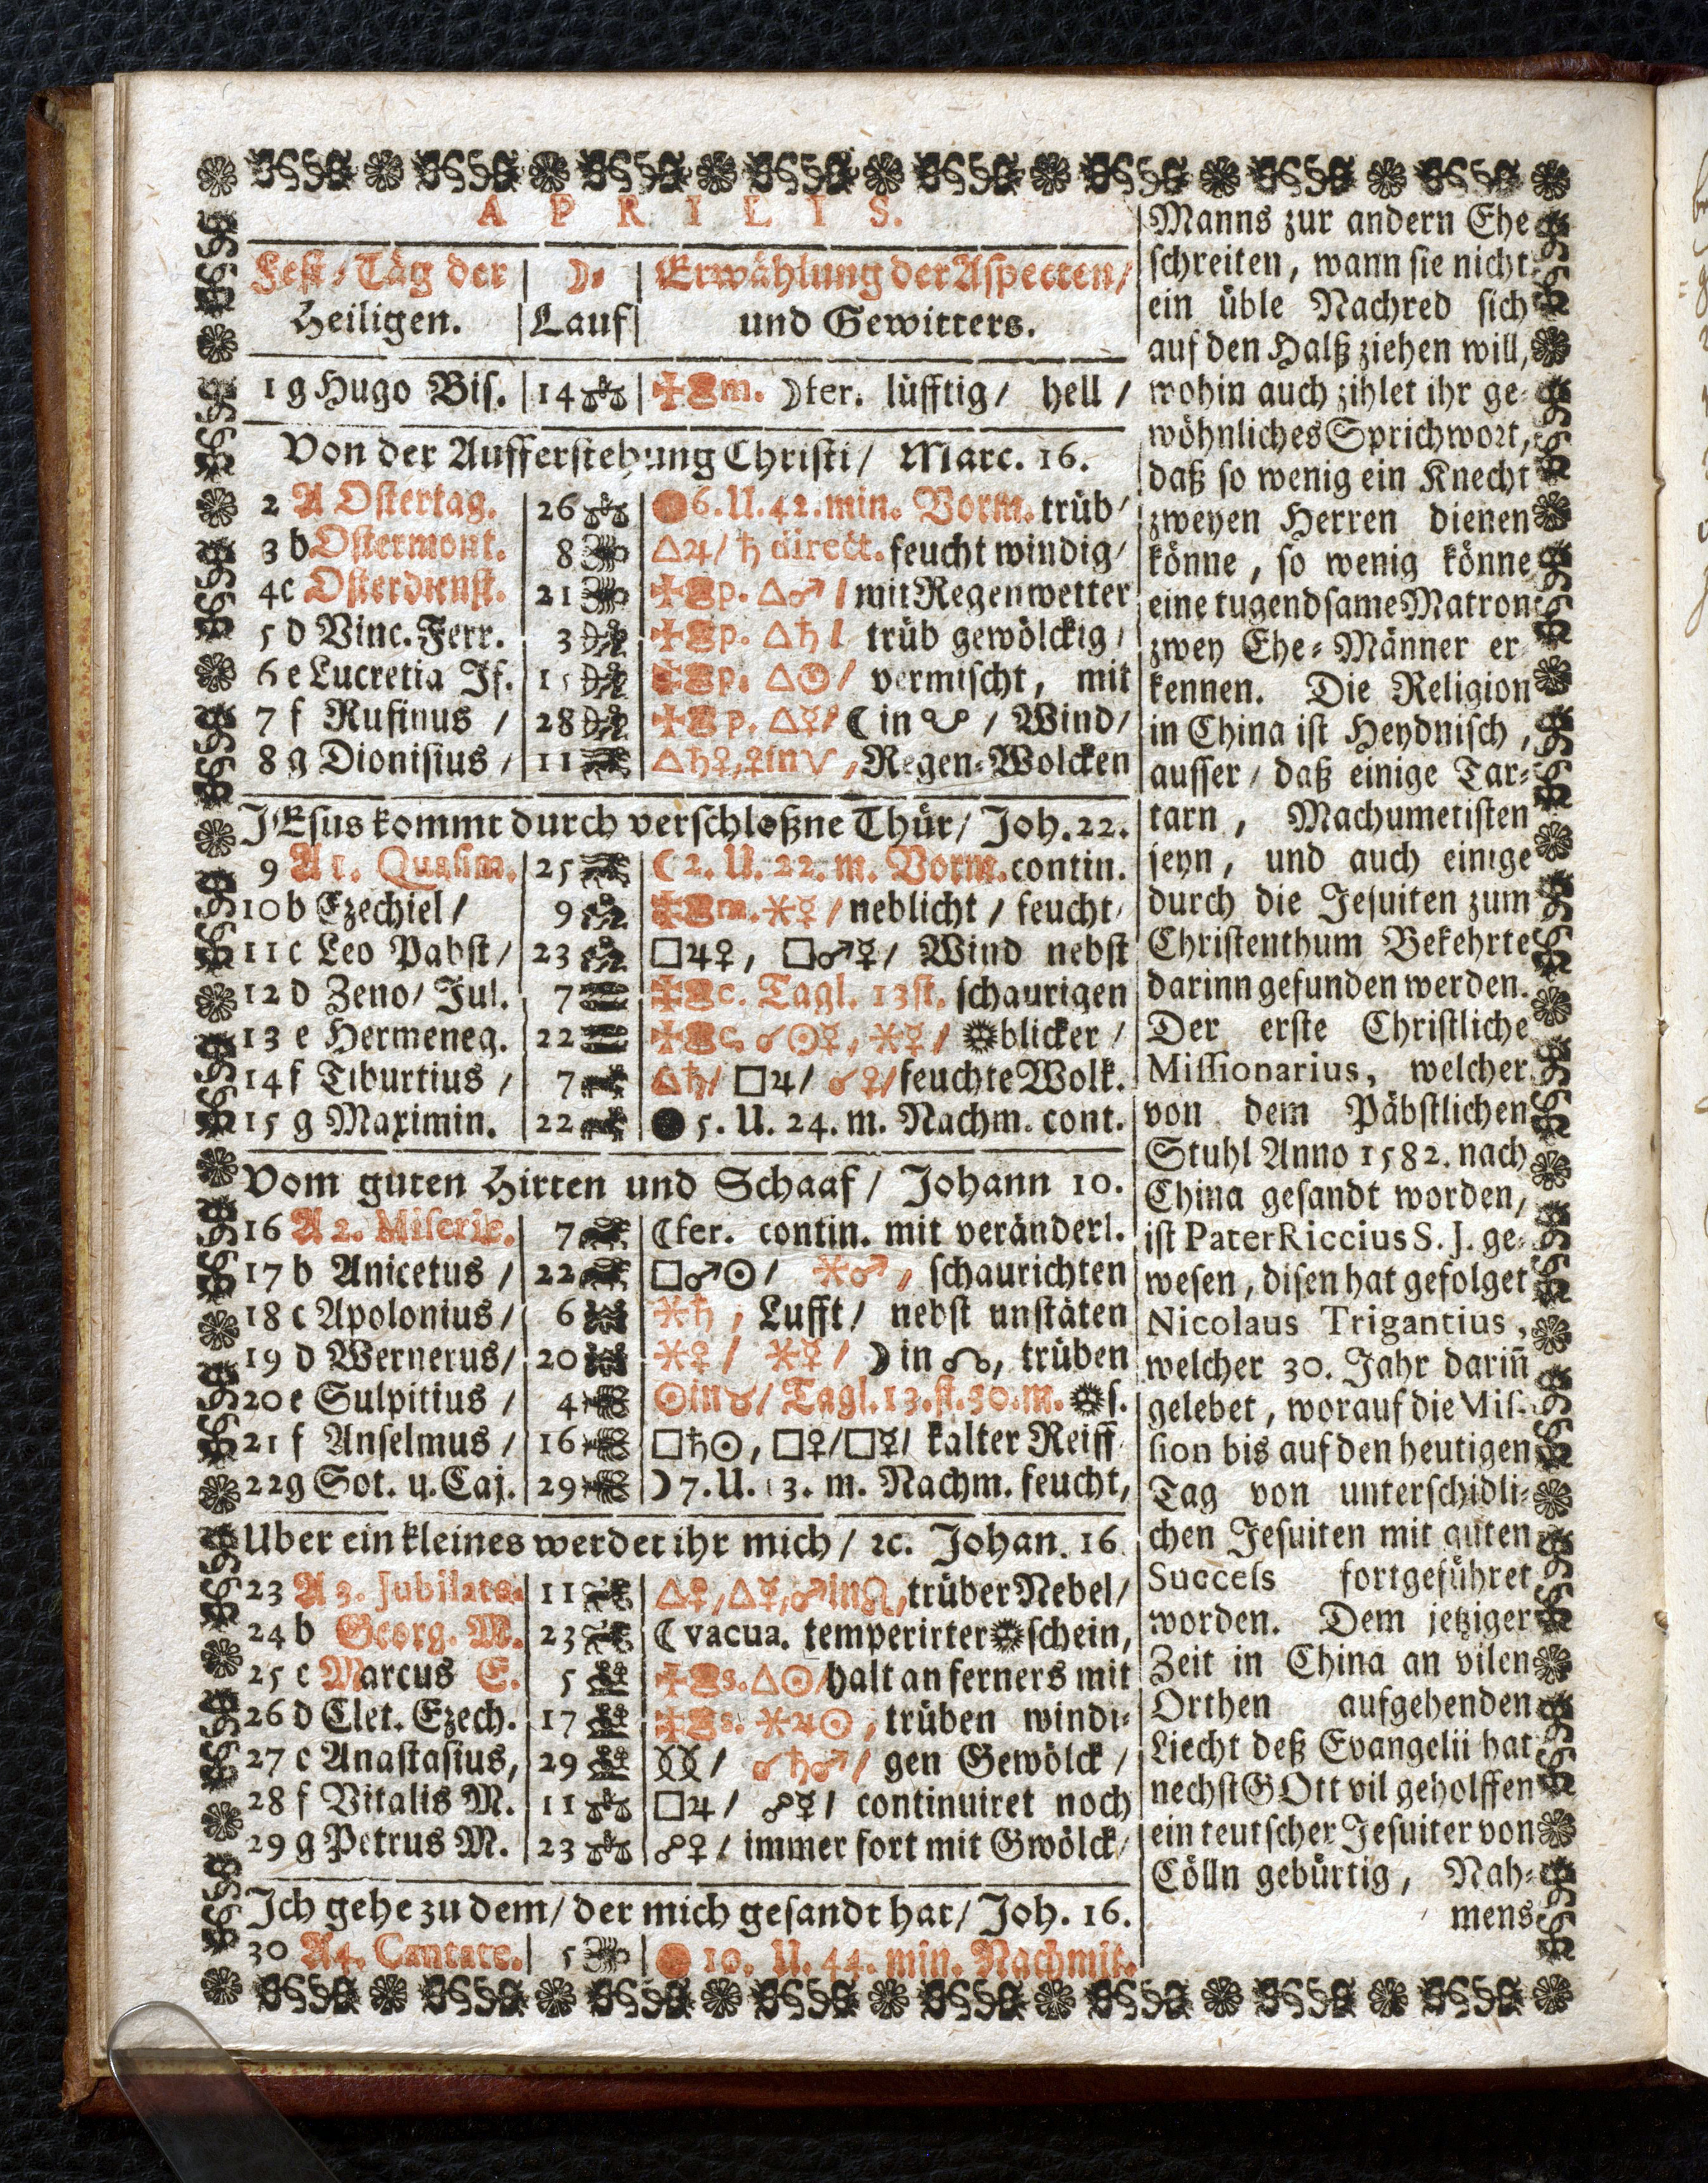 APRILIS.
Fest-Täg der | ☽. | Erwählung der Aspecten/
Heiligen. | Lauf | und Gewitters.
1 g Hugo Bis. | 14 | m. ☽fer. lüfftig/ hell /
Von der Aufferstehung Christi/ Marc. 16.
2 A Ostertag. | 26 | 6. U. 42. min. Vorm. trüb/
3 b Ostermont. | 8 | △♃/ ♄ direct. feucht windig/
4 c Osterdienst. | 21 | p. △♂ / mit Regenwetter
5 d Vinc. Ferr. | 3 | p. △♄ / trüb gewölckig /
6 e Lucretia Jf. | 15 | p. △☉/ vermischt, mit
7 f Rufinus / | 28 | p. △☿/ ☾ in ☋ / Wind/
8 g Dionisius / | 11 | △♄♀, ♀in♈, Regen-Wolcken
JEsus kommt durch verschloßne Thür/ Joh. 22.
9 A 1. Quasim. | 25 | ☾2. U. 22. m. Vorm. contin.
10 b Ezechiel / | 9 | m. ⚹☿ / neblicht / feucht/
11 c Leo Pabst/ | 23 | □♃♀, □♂☿/ Wind nebst
12 d Zeno/ Jul. | 7 | c. Tagl. 13 st. schaurigen
13 e Hermeneg. | 22 | c. ☌☉☿, ⚹♀/ blicker /
14 f Tiburtius / | 7 | △♄/ □♃/ ☌♀/ feuchte Wolk.
15 g Maximin. | 22 | ● 5. U. 24. m. Nachm. cont.
Vom guten Hirten und Schaaf / Johann 10.
16 A 2. Miseric. | 7 | ☾fer. contin. mit veränderl.
17 b Anicetus / | 22 | □♂☉/ ⚹♂ , schaurichten
18 c Apolonius/ | 6 | ⚹♄ , Lufft/ nebst unstäten
19 d Wernerus/ | 20 | ⚹♀ / ⚹☿ / ☽ in ☊, trüben
20 e Sulpitius / | 4 | ☉in♉/ Tagl. 13. st. 30. m. s.
21 f Anselmus / | 16 | □♄☉, □♀/□☿/ kalter Reiff
22 g Sot. u. Caj. | 29 | ☽ 7. U. 3. m. Nachm. feucht,
Uber ein kleines werdet ihr mich / ꝛc. Johan. 16
23 A 3. Jubilate. | 11 | △♀, △☿, ♂in♌, trüber Nebel/
24 b Georg. M. | 23 | ☾ vacua. temperirter schein,
25 c Marcus E. | 5 | s. △☉/ halt an ferners mit
26 d Clet. Ezech. | 17 | s. ⚹♃☉, trüben windi-
27 e Anastasius, | 29 | / ☌♄♂ / gen Gewölck /
28 f Vitalis M. | 11 | □♃ / ☍☿/ continuiret noch
29 g Petrus M. | 23 | ☍♀ / immer fort mit Gwölck/
Ich gehe zu dem/ der mich gesandt hat/ Joh. 16.
30 A 4. Cantate. | 5 | 10. U. 44. min. Nachmit.
Manns zur andern Ehe
schreiten, wann sie nicht
ein üble Nachred sich
auf den Halß ziehen will,
wohin auch zihlet ihr ge-
wöhnliches Sprichwort,
daß so wenig ein Knecht
zweyen Herren dienen
könne, so wenig könne
eine tugendsame Matron
zwey Ehe-Männer er-
kennen. Die Religion
in China ist Heydnisch,
ausser / daß einige Tar-
tarn, Machumetisten
seyn, und auch einige
durch die Jesuiten zum
Christenthum Bekehrte
darinn gefunden werden.
Der erste Christliche
Missionarius, welcher
von dem Päbstlichen
Stuhl Anno 1582. nach
China gesandt worden,
ist Pater Riccius S. J. ge-
wesen, disen hat gefolget
Nicolaus Trigantius,
welcher 30. Jahr dariñ
gelebet, worauf die Mis-
sion bis auf den heutigen
Tag von unterschidli-
chen Jesuiten mit guten
Succeß fortgeführet
worden. Dem jetziger
Zeit in China an vilen
Orthen aufgehenden
Liecht deß Evangelii hat
nechst GOtt vil geholffen
ein teutscher Jesuiter von
Cölln gebürtig, Nah-
mens